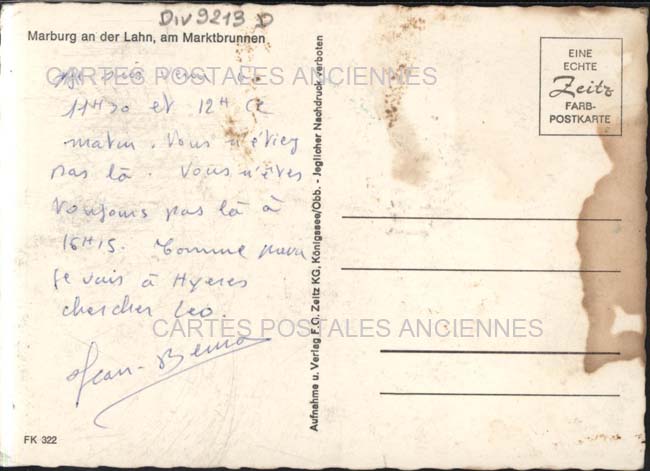 Div 9213 D
Marburg an der Lahn, am Marktbrunnen
CARTES POSTALES ANCIENNES
Je suis venu
11H30 et 12H ce
matin. Vous n'étiez
pas là. Vous n'êtes
toujours pas là à
16H15. Comme prévu
je vais à Hyeres
chercher Leo.
CARTES POSTALES ANCIENNES
Jean-
FK 322
Aufnahme u. Verlag F.G. Zeitz KG, Königssee/Obb. - Jeglicher Nachdruck verboten
EINE
ECHTE
Zeitz
FARB-
POSTKARTE